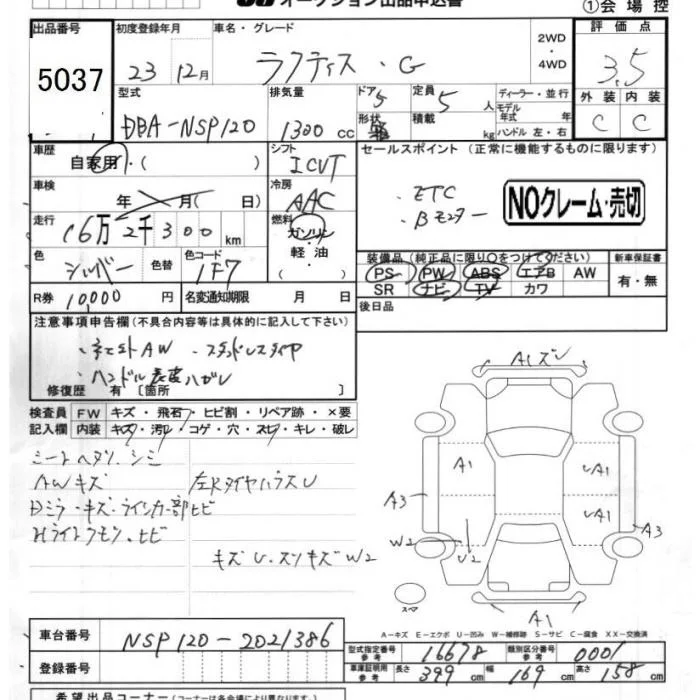 オークション出品申込書
①会場控
出品番号 初度登録年月 車名・グレード 評価点
5037 23 12月 ラクティス・G 2WD 4WD 3.5
外装 内装
C C
型式 排気量 ドア 定員 ディーラー・並行
DBA-NSP120 1300 cc 5 形状 5 人 積載 kg モデル年式 年 ハンドル 左・右
車歴 シフト セールスポイント (正常に機能するものに限ります)
自家用・( ) ICVT
車検 冷房
年 月( 日) AAC
・ETC
・Bモニター
NOクレーム・売切
走行 燃料
16万2千300km ガソリン
軽・油
( )
色 シルバー 色替 色コード 1F7
装備品 (純正品に限り○をつけてください) 新車保証書
PS PW ABS エアB AW 有・無
SR ナビ TV カワ
R券 10,000 円 名変通知期限 月 日
後日品
注意事項申告欄 (不具合内容等は具体的に記入して下さい)
AW ・スタッドレスタイヤ
・ハンドル表皮ハガレ
修復歴 有 [箇所 ]
検査員 FW キズ・飛石・ヒビ割・リペア跡・×要
記入欄 内装 キズ・汚レ・コゲ・穴・スレ・キレ・破レ
シートヘタリ、シミ
AWキズ
Dミラーキズ・ウインカー部ヒビ
キズU・スリキズW2
A1キズU
A1
UA1
UA1
A3
A3
W2
U2
スペア
A1
A-キズ E-エクボ U-凹み W-補修跡 S-サビ C-腐食 XX-交換済
車台番号 NSP120-2021386
登録番号
型式指定番号 参考 16678 類別区分番号 参考 0001
車庫証明用 参考 長さ 399 cm 幅 169 cm 高さ 158 cm
希望出品コーナー